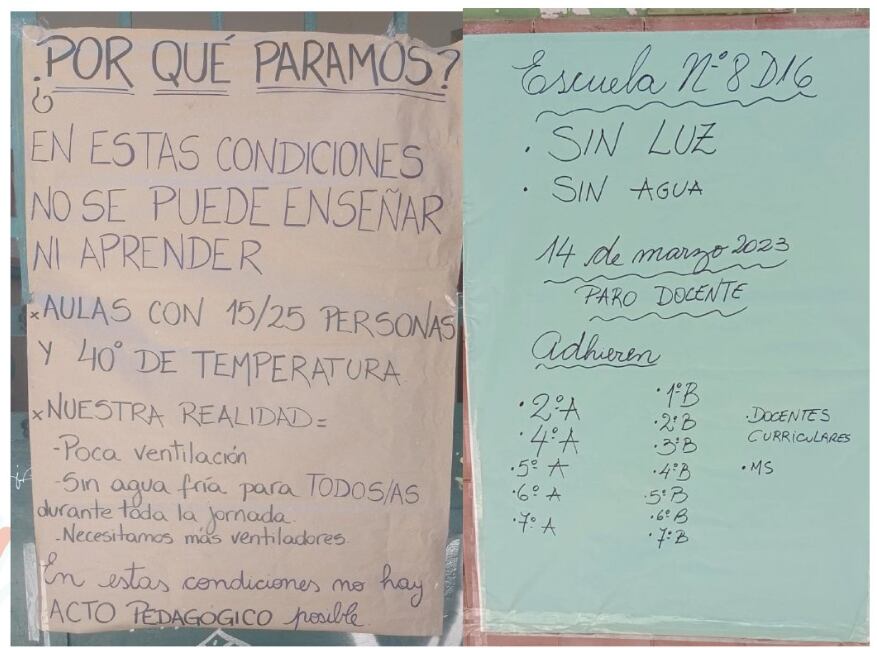 ¿POR QUÉ PARAMOS?
EN ESTAS CONDICIONES
NO SE PUEDE ENSEÑAR
NI APRENDER
x AULAS CON 15/25 PERSONAS
Y 40° DE TEMPERATURA
x NUESTRA REALIDAD=
-Poca ventilación
-Sin agua fría para TODOS/AS
durante toda la jornada.
-Necesitamos más ventiladores.
En estas condiciones no hay
ACTO PEDAGÓGICO posible.
Escuela N°8 D16
· SIN LUZ
· SIN AGUA
14 de marzo 2023
PARO DOCENTE
Adhieren
· 2°A
· 4°A
· 5° A
· 6° A
· 7° A
· 1°B
· 2°B
· 3°B
· 4°B
· 5°B
· 6°B
· 7°B
· DOCENTES
CURRICULARES
· MS